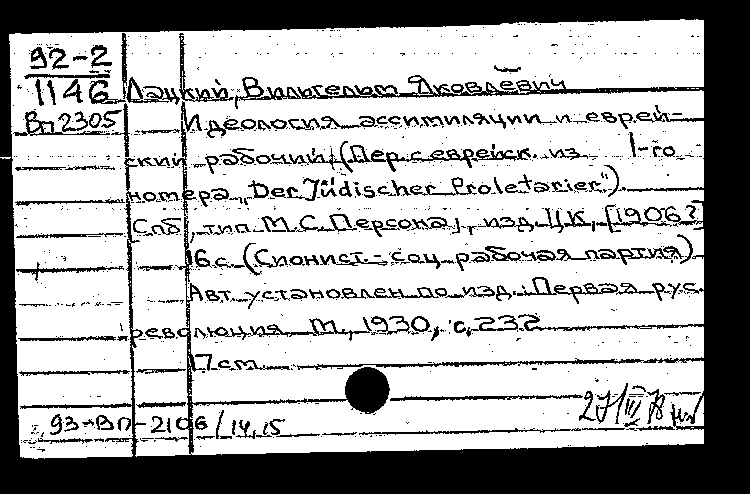 92-2
1146 Лацкий, Вильгельм Яковлевич
Вп2305 Идеология ассимиляции и еврей-
ский рабочий (Пер. с еврейск. из 1-го
номера „Der Jüdischer Proletarier").
Спб, тип. М.С. Персона, изд. ЦК, [1906?]
16с. (Сионист.-соц. рабочая партия)
Авт. установлен по изд.: Первая рус.
революция М., 1930, с. 232
17cm
93-ВП-2106/14,15